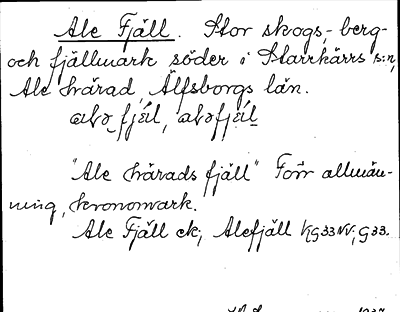 Ale Fjäll. Stor skogs-, berg-
och fjällmark söder i Starrkärrs s:n,
Ale härad, Älfsborgs län.
"Ale härads fjäll" Förr allmän-
ning, kronomark.
Ale Fjäll ek; Alefjäll KG33NV, G33.